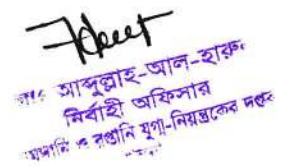 আব্দুল্লাহ-আল-হারুন
নির্বাহী অফিসার
আমদানি ও রপ্তানি যুগ্ম-নিয়ন্ত্রকের দপ্তর